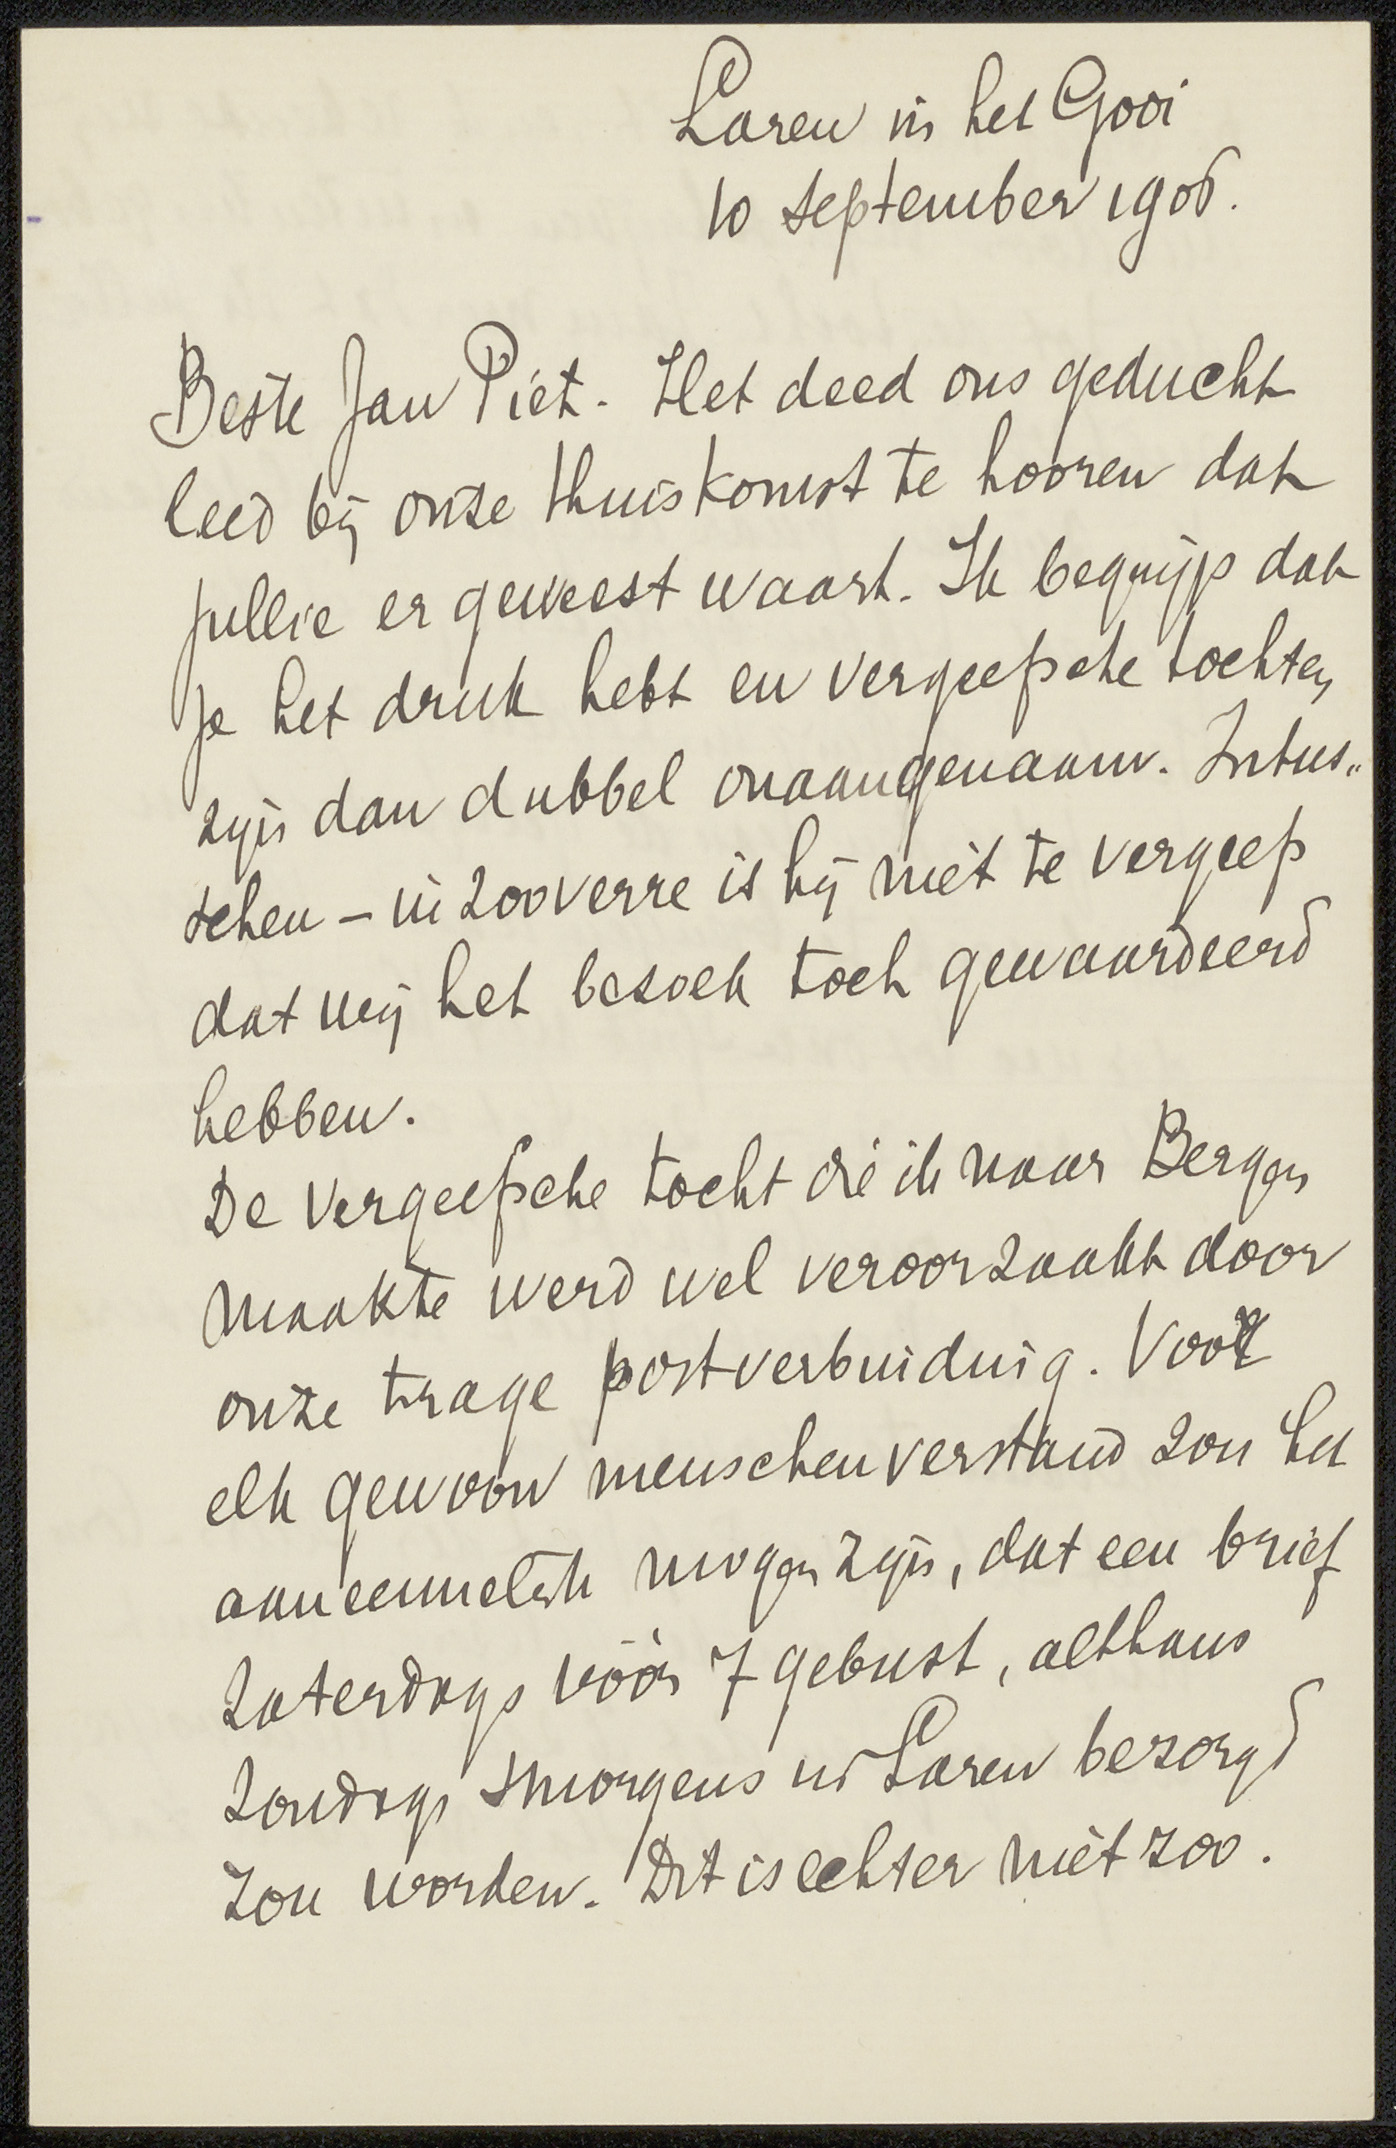 Laren in het Gooi
10 September 1906.
Beste Jan Piet. Het deed ons geducht
leed bij onze thuiskomst te hooren dat
jullie er geweest waart. Ik begrijp dat
je het druk hebt en vergeefsche tochten
zijn dan dubbel onaangenaam. Intus„
schen – in zooverre is hij niet te vergeefs
dat wij het bezoek toch gewaardeerd
hebben.
De vergeefsche tocht die ik naar Bergen
maakte werd wel veroorzaakt door
onze trage postverbinding. Voor
elk gewoon menschenverstand zou het
aannemelijk mogen zijn, dat een brief
Zaterdags vóór 7 gebust, althans
Zondags smorgens in Laren bezorgd
zou worden. Dit is echter niet zoo.